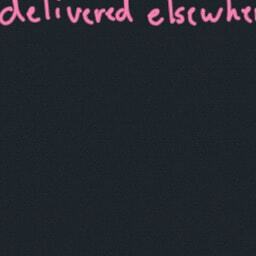 delivered elsewher